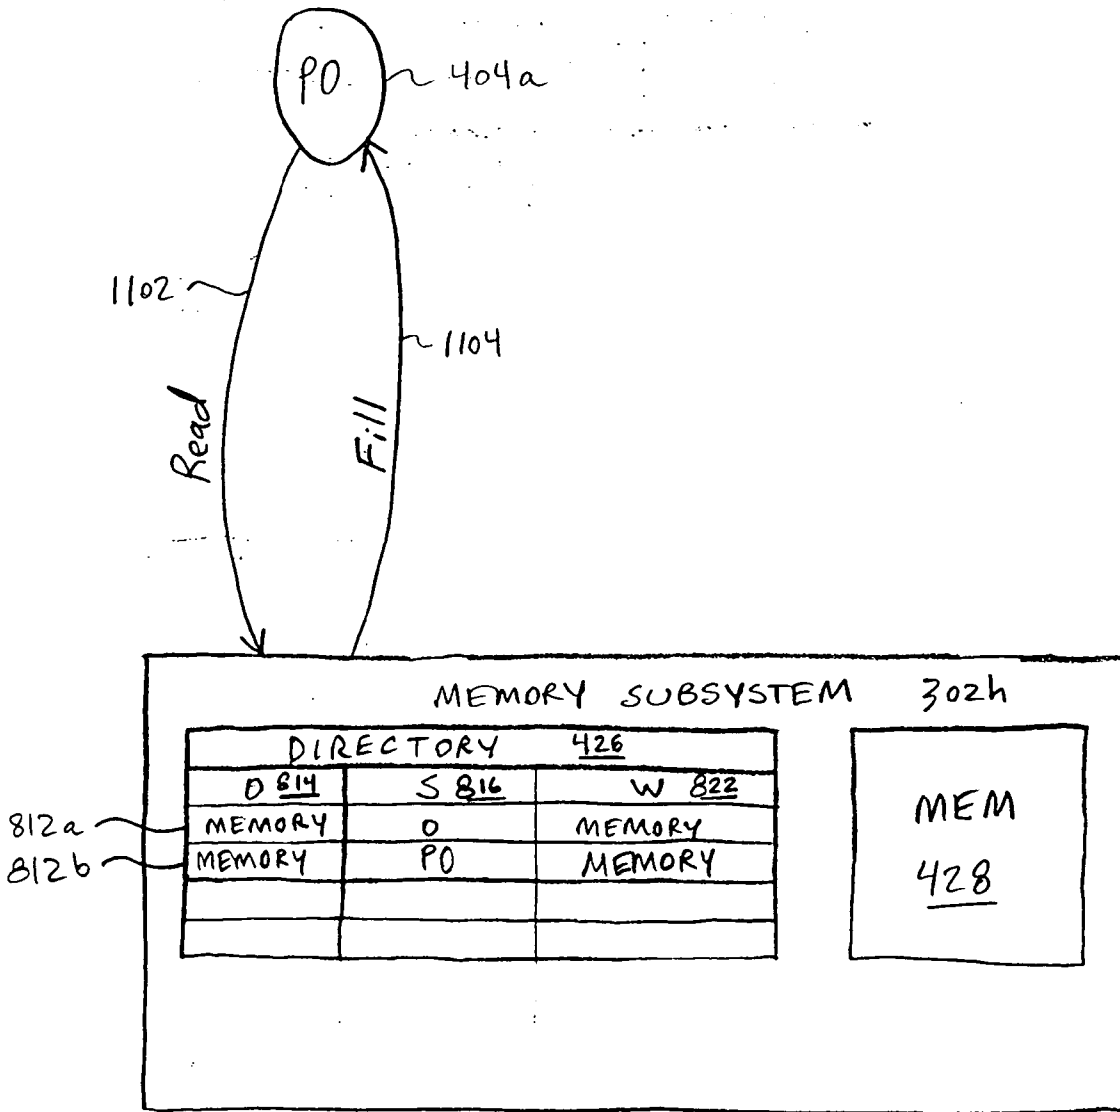 P0 404a
1102
1104
Read
Fill
MEMORY SUBSYSTEM 302h
DIRECTORY 426
O 814 S 816 W 822
812a MEMORY 0 MEMORY
812b MEMORY P0 MEMORY
MEM
428